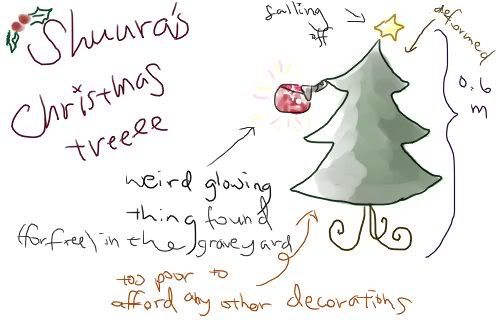 Shuura's
Christmas
treeee
falling
off
deformed
0.6
m
weird glowing
thing found
(for free) in the graveyard
too poor to
afford any other decorations